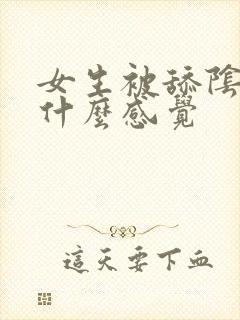 女生被舔陰
什麼感覺
這天要下血